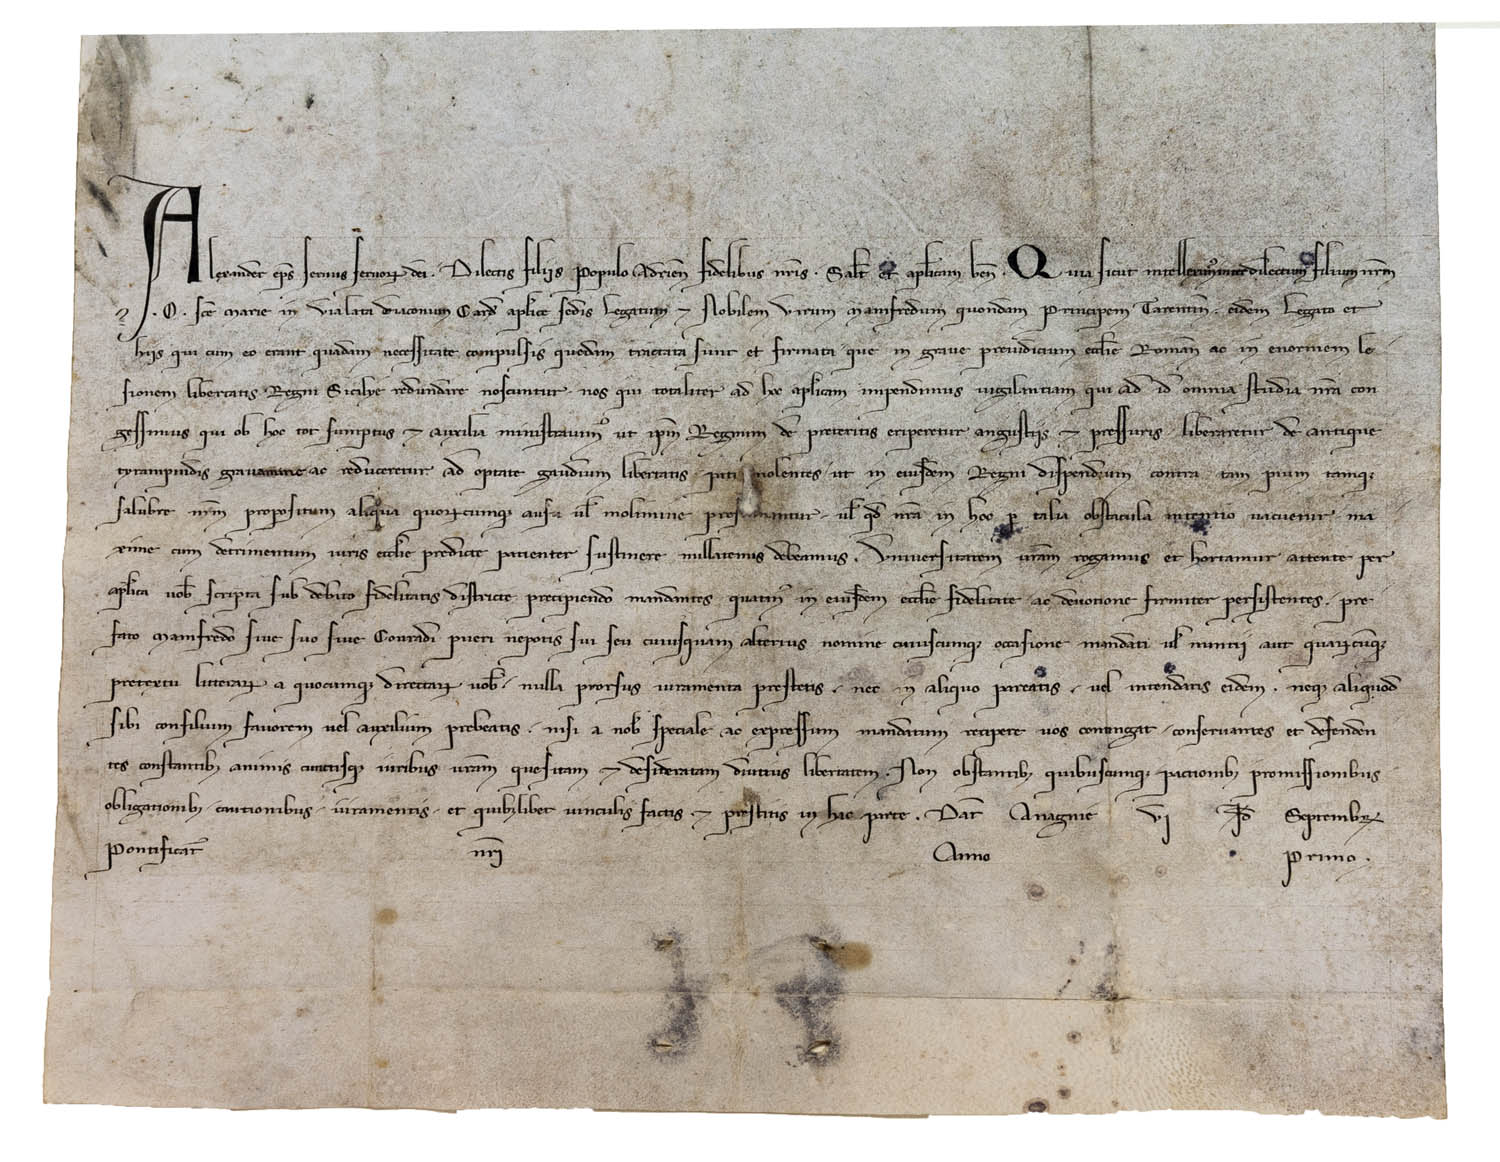 Alexander ep̄s servus servoꝝ dei. Dilectis filijs Populo Adrien̄ fidelibus nr̄is. Salt̄ et ap̄licam ben̄. Quia sicut intelleximus inter dilectum filium nr̄m
.O. sc̄e Marie in Vialata diaconum Card̄ ap̄lice sedis Legatum ⁊ Nobilem Virum Manfredum quondam Principem Tarentin̄. eidem Legato et
hijs qui cum eo erant quadam necessitate compulsis quedam tractata sunt et firmata que in grave preiudicium eccl̄ie Roman̄ ac in enormem le
sionem libertatis Regni Sicilye redundare noscuntur. nos qui totaliter ad hec ap̄licam impendimus vigilantiam qui ad id omnia studia nr̄a con
gessimus qui ob hoc tot sumptus ⁊ auxilia ministravimꝰ ut ip̄m Regnum de preteritis eriperetur angustijs ⁊ pressuris. liberaretur de antique
tyrampnidis gravamine ac reduceretur ad optate gaudium libertatis. pati nolentes. ut in eiusdem Regni dispendium contra tam pium tamqꝫ
salubre nr̄m propositum aliqua quorumcumqꝫ ausu ul̄ molimine presumantur. ul̄ qd̄ nr̄a in hoc ꝑ talia obstacula intentio vacuetur. ma
xime cum detrimentum iuris eccl̄ie predicte patienter sustinere nullatenus debeamus. Universitatem vr̄am rogamus et hortamur attente per
ap̄lica vob̄ scripta sub debito fidelitatis districte precipiendo mandantes quatinꝰ in eiusdem eccl̄ie fidelitate ac devotione firmiter persistentes. pre
fato Manfredo sive suo sive Conradi pueri nepotis sui seu cuiusquam alterius nomine cuiuscumqꝫ occasione mandati ul̄ nuntij aut quarūcūqꝫ
pretextu litterarꝫ a quocumqꝫ directarꝫ vob̄. nulla prorsus iuramenta prestetis. nec in aliquo pareatis. vel intendatis eidem. neqꝫ aliquod
sibi consilium favorem vel auxilium prebeatis. nisi a nob̄ speciale ac expressum mandatum recipere vos contingat. conservantes et defenden
tes constantibꝫ animis cunctisqꝫ viribus vr̄am quesitam ⁊ desideratam diutius libertatem. Non obstantibꝫ quibuscumqꝫ pactionibꝫ promissionibus
obligationibꝫ. cautionibus. iuramentis. et quibuslibet vinculis factis ⁊ prestitis in hac parte. Dat̄ Anagnie vi kl̄ Septembr̄
Pontificat̄ nr̄i Anno Primo.